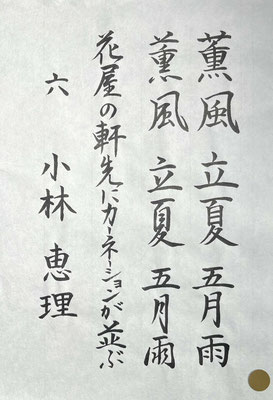 薫風 立夏 五月雨
薫風 立夏 五月雨
花屋の軒先にカーネーションが並ぶ
六 小林 恵理